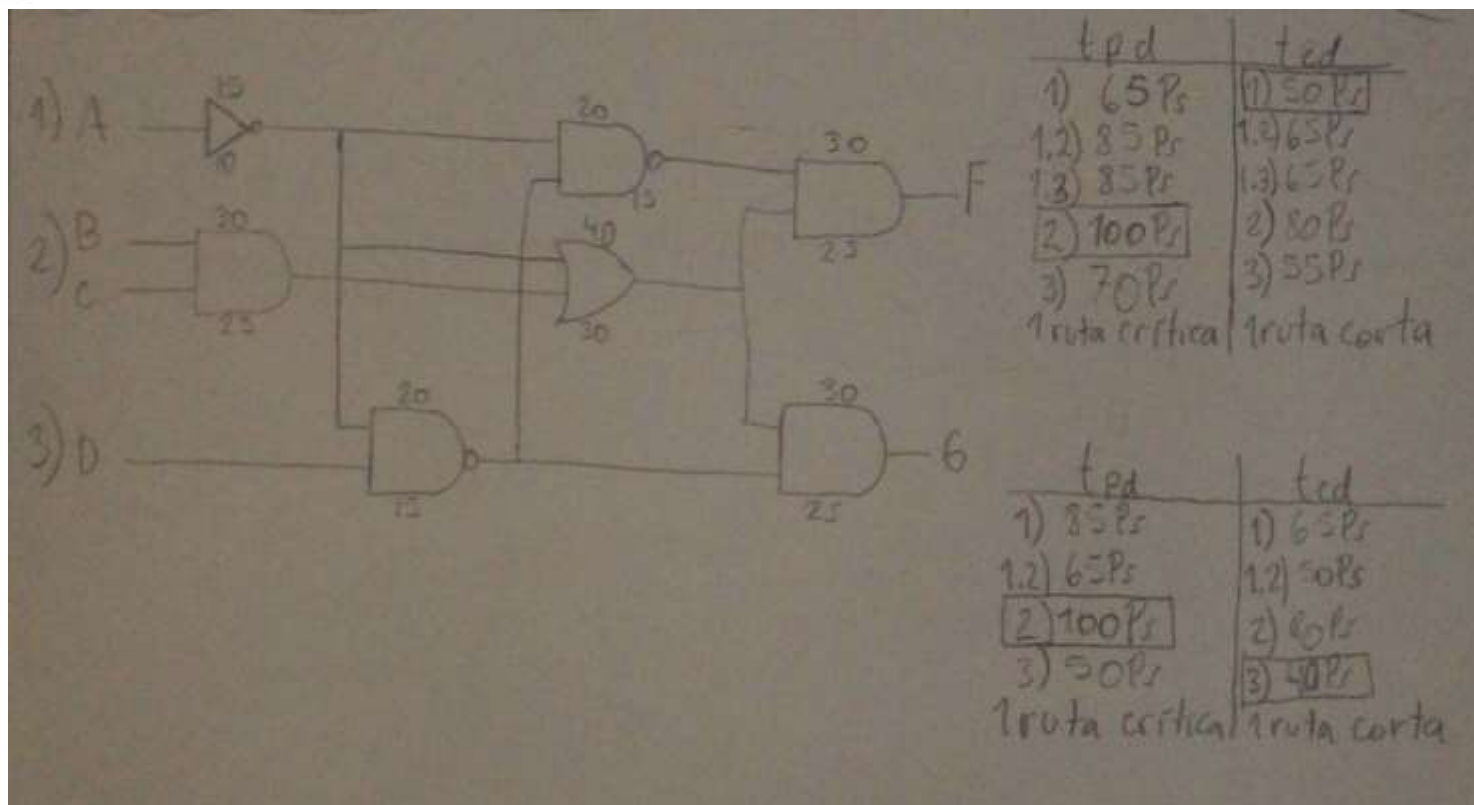 1) A
15
10
20
15
30
25
F
2) B
C
30
25
40
30
3) D
20
15
30
25
G
tpd tcd
1) 65Ps 1) 50Ps
1.2) 85Ps 1.2) 65Ps
1.3) 85Ps 1.3) 65Ps
2) 100Ps 2) 80Ps
3) 70Ps 3) 55Ps
1 ruta crítica 1 ruta corta
tpd tcd
1) 85Ps 1) 65Ps
1.2) 65Ps 1.2) 50Ps
2) 100Ps 2) 80Ps
3) 50Ps 3) 40Ps
1 ruta crítica 1 ruta corta